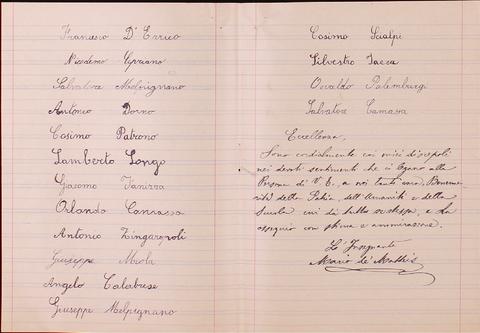 Francesco D' Errico
Nicodemo Cipriano
Salvatore Melpignano
Antonio Dorno
Cosimo Patrono
Lamberto Longo
Giacomo
Orlando
Antonio Zingaropoli
Giuseppe Miola
Angelo Calabrese
Giuseppe Melpignano
Cosimo Scialpi
Silvestro Jacca
Osvaldo Palumburgi
Salvatore Camassa
Eccellenza,
Sono cordialmente coi miei discepoli
nei devoti sentimenti che ci legano alla
Persona di V. E. a noi tanto cara, Beneme-
rita della Patria, dell'Umanità e della
Scuola cui dà tutto se stesso, e La
ossequio con stima e ammirazione.
L'Insegnante
Mario de' Mattis